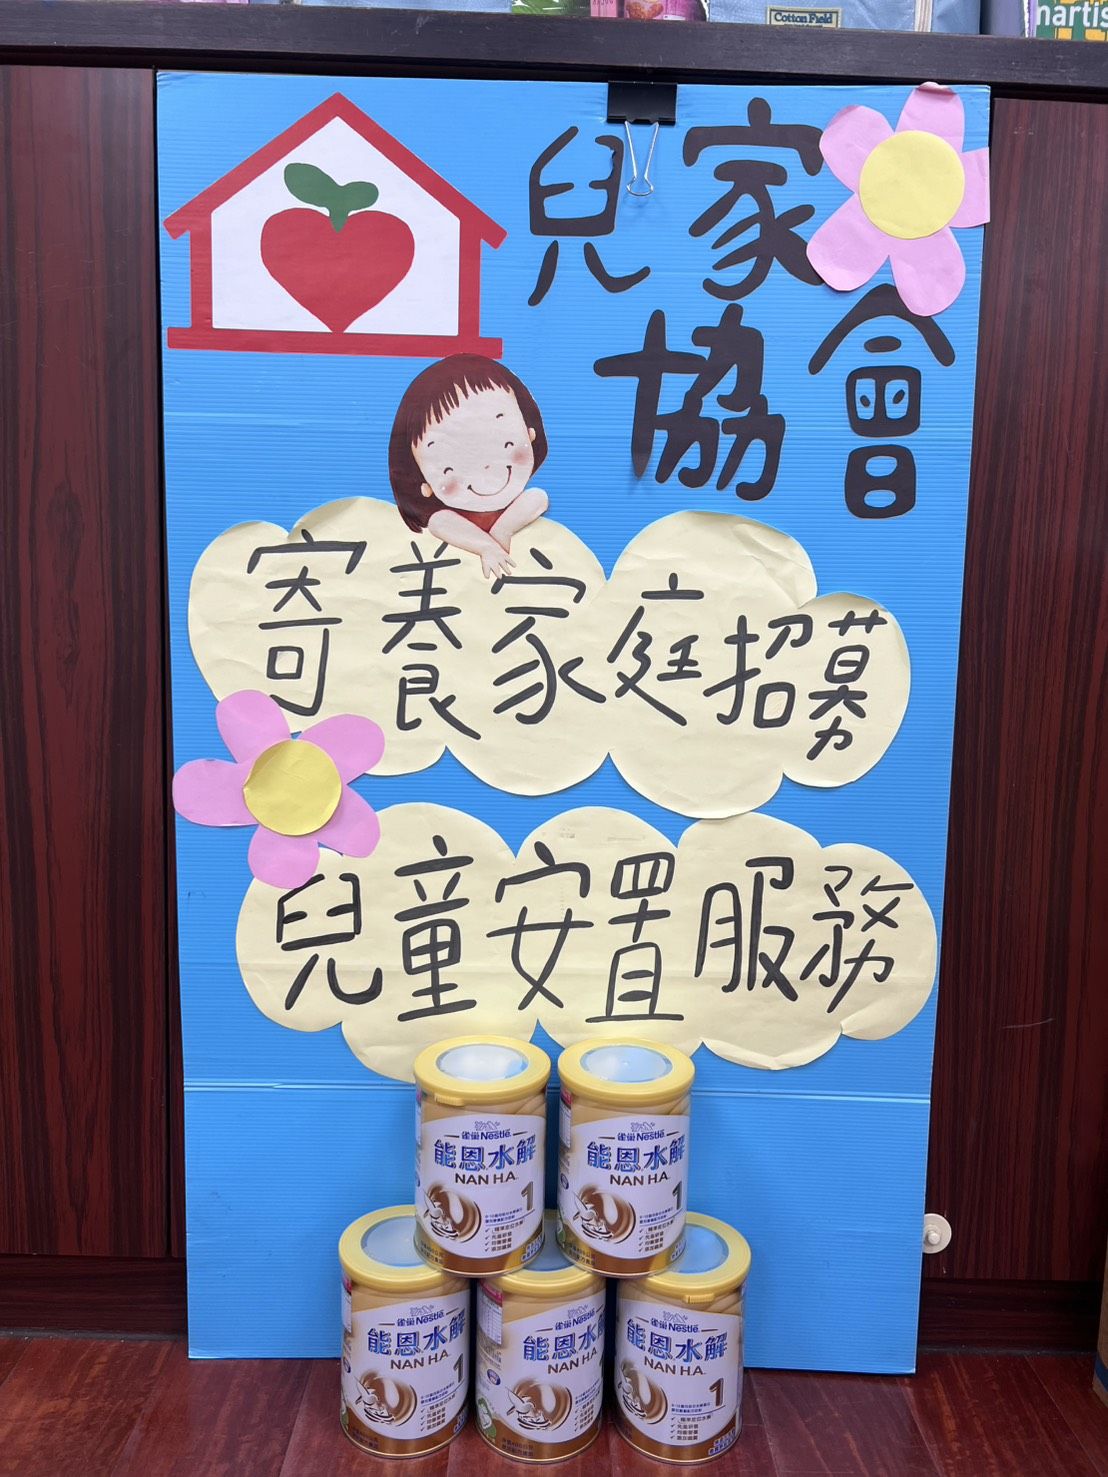 Cotton Field
nartis
兒家
協會
寄養家庭招募
兒童安置服務
雀巢Nestlé
能恩水解
NAN H.A.
1
雀巢Nestlé
能恩水解
NAN H.A.
1
雀巢Nestlé
能恩水解
NAN H.A.
1
雀巢Nestlé
能恩水解
NAN H.A.
雀巢Nestlé
能恩水解
NAN H.A.
1